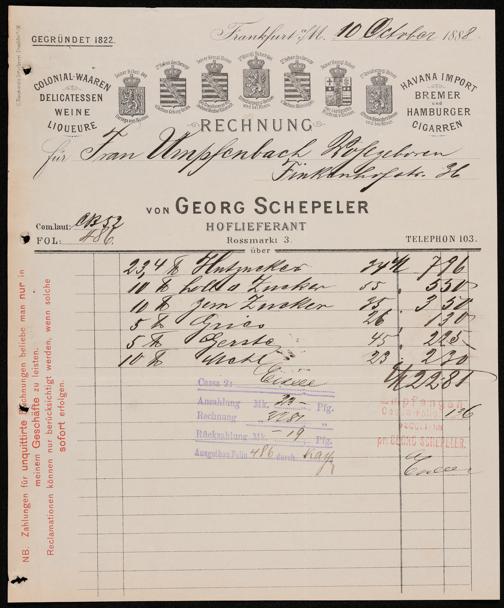 GEGRÜNDET 1822.
Frankfurt a/M. 10 October 1888
COLONIAL-WAAREN
DELICATESSEN
WEINE
LIQUEURE
HAVANA IMPORT
BREMER
und
HAMBURGER
CIGARREN
RECHNUNG
für Frau Umpfenbach Wohlgeboren
Finkenhofstr. 36
VON GEORG SCHEPELER
HOFLIEFERANT
Rossmarkt 3.
über
Com. laut:
FOL: 486.
TELEPHON 103.
23,4 ℔ Hutzucker 34 M 7 96
10 ℔ Zucker 55 . 5 50
10 ℔ gem Zucker 35 . 3 50
5 ℔ Gries 26 . 1 30
5 ℔ Gerste 45 . 2 25
10 ℔ Mehl 23 . 2 30
M 22 81
Cassa 2:
Anzahlung Mk. 23 - Pfg.
Rechnung 22 81 "
Rückzahlung Mk. - 19 Pfg.
Ausgethan Folio 486 durch:
Empfangen
Cassa-Folio 126
pr. GEORG SCHEPELER.
NB. Zahlungen für unquittirte Rechnungen beliebe man nur in
meinem Geschäfte zu leisten.
Reclamationen können nur berücksichtigt werden, wenn solche
sofort erfolgen.